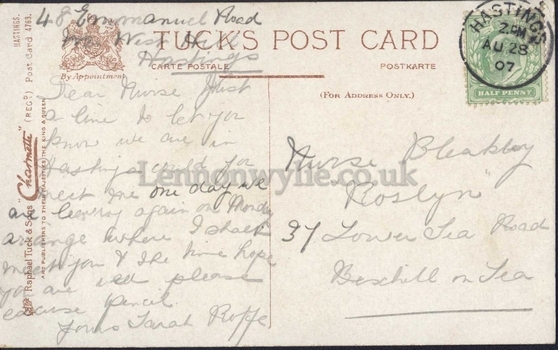 48 Emmanuel Road
West Hill
Hastings
TUCK'S POST CARD
By Appointment
CARTE POSTALE
POSTKARTE
(FOR ADDRESS ONLY.)
HASTINGS
2. PM
AU 28
07
HALF PENNY
HASTINGS. (REGD) Post Card 4763.
Raphael Tuck & Sons' "Charmette"
ART PUBLISHERS TO THEIR MAJESTIES THE KING & QUEEN
Dear Nurse Just
a line to let you
know we are in
Hastings could you
meet me one day we
are leaving again on Monday
arrange where I shall
meet you & the time hope
you are well please
excuse pencil
Yours Sarah Roffe
Nurse Bleakley
"Roslyn"
37 Lower Sea Road
Bexhill on Sea
Lennonwylie.co.uk